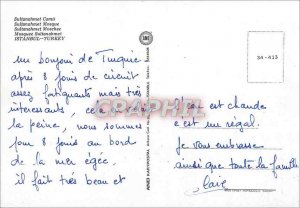 Sultanahmet Camii
Sultanahmet Mosque
Sultanahmet Moschee
Mosquee Sultanahmet
ISTANBUL-TURKEY
34-413
un bonjour de Turquie
après 8 jours de circuit
assez fatiguants mais très
intéressants, cela
la peine, nous sommes
pour 8 jours au bord
de la mer égée.
il fait très beau et
l'eau est chaude
c'est un régal.
Je vous embrasse
ainsi que toute la famille